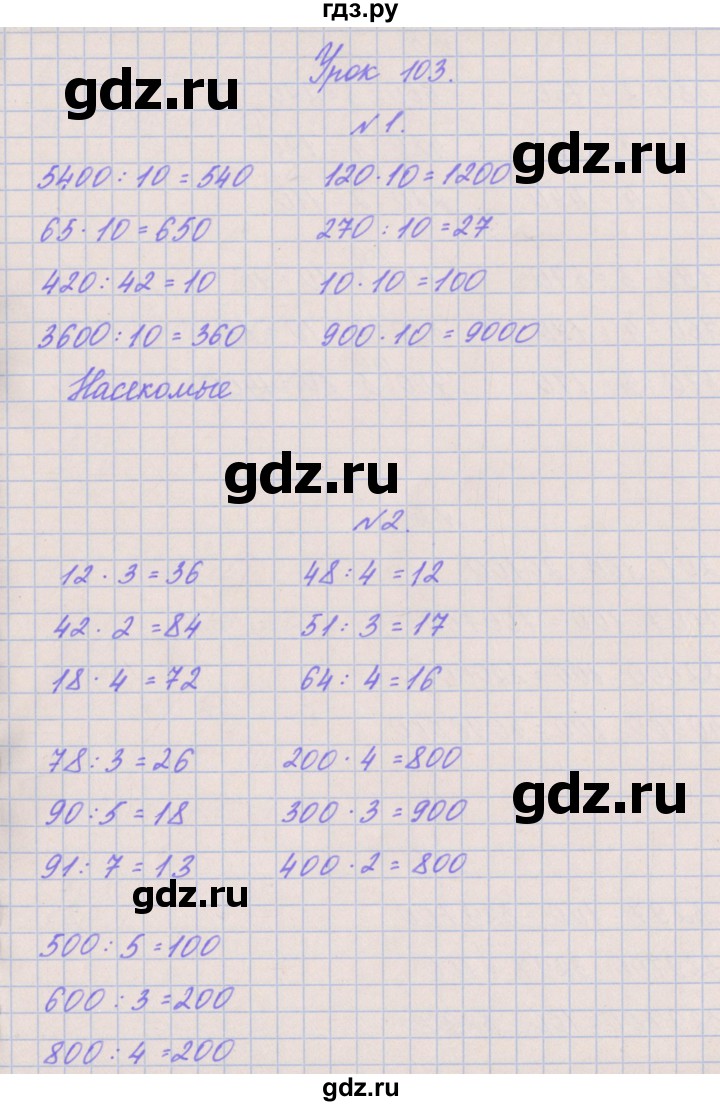 гдз.ру
Урок 103.
gdz.ru
№1.
gdz.ru
5400 : 10 = 540 120 · 10 = 1200
65 · 10 = 650 270 : 10 = 27
420 : 42 = 10 10 · 10 = 100
3600 : 10 = 360 900 · 10 = 9000
Насекомые
gdz.ru
№2.
12 · 3 = 36 48 : 4 = 12
42 · 2 = 84 51 : 3 = 17
18 · 4 = 72 64 : 4 = 16
78 : 3 = 26 200 · 4 = 800
gdz.ru
90 : 5 = 18 300 · 3 = 900
91 : 7 = 13 400 · 2 = 800
gdz.ru
500 : 5 = 100
600 : 3 = 200
800 : 4 = 200
gdz.ru